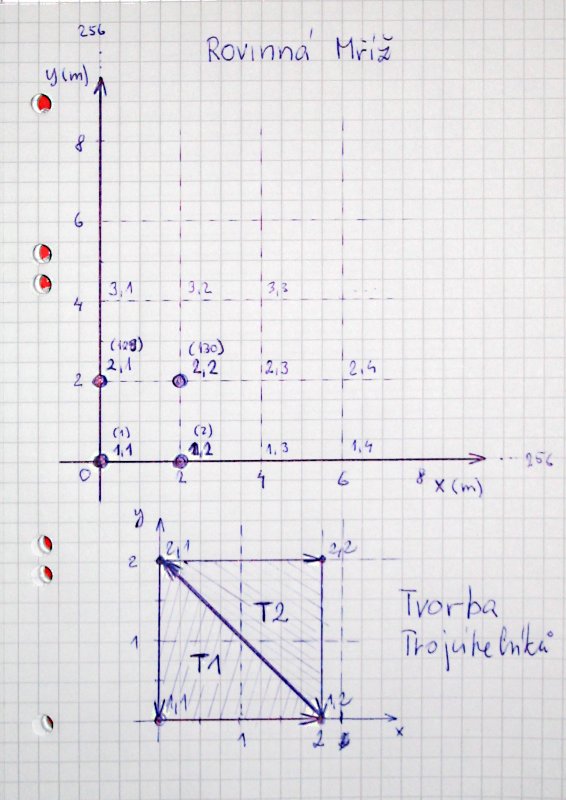 256
Rovinná Mříž
y(m)
8
6
3,1 3,2 3,3 .....
4
(129) (130)
2,1 2,2 2,3 2,4
2
(1) (2)
1,1 1,2 1,3 1,4
0 2 4 6 8 x(m) ....256
y
2 2,1 2,2
T2
Tvorba
1 Trojúhelníků
T1
1,1 1,2
1 2 x